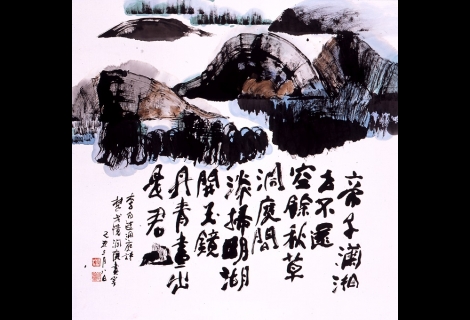 帝子瀟湘
去不還
空餘秋草
洞庭間
淡掃明湖
開玉鏡
丹青畫出
是君山
李白遊洞庭詩
楚戈憶洞庭畫
乙丑三月